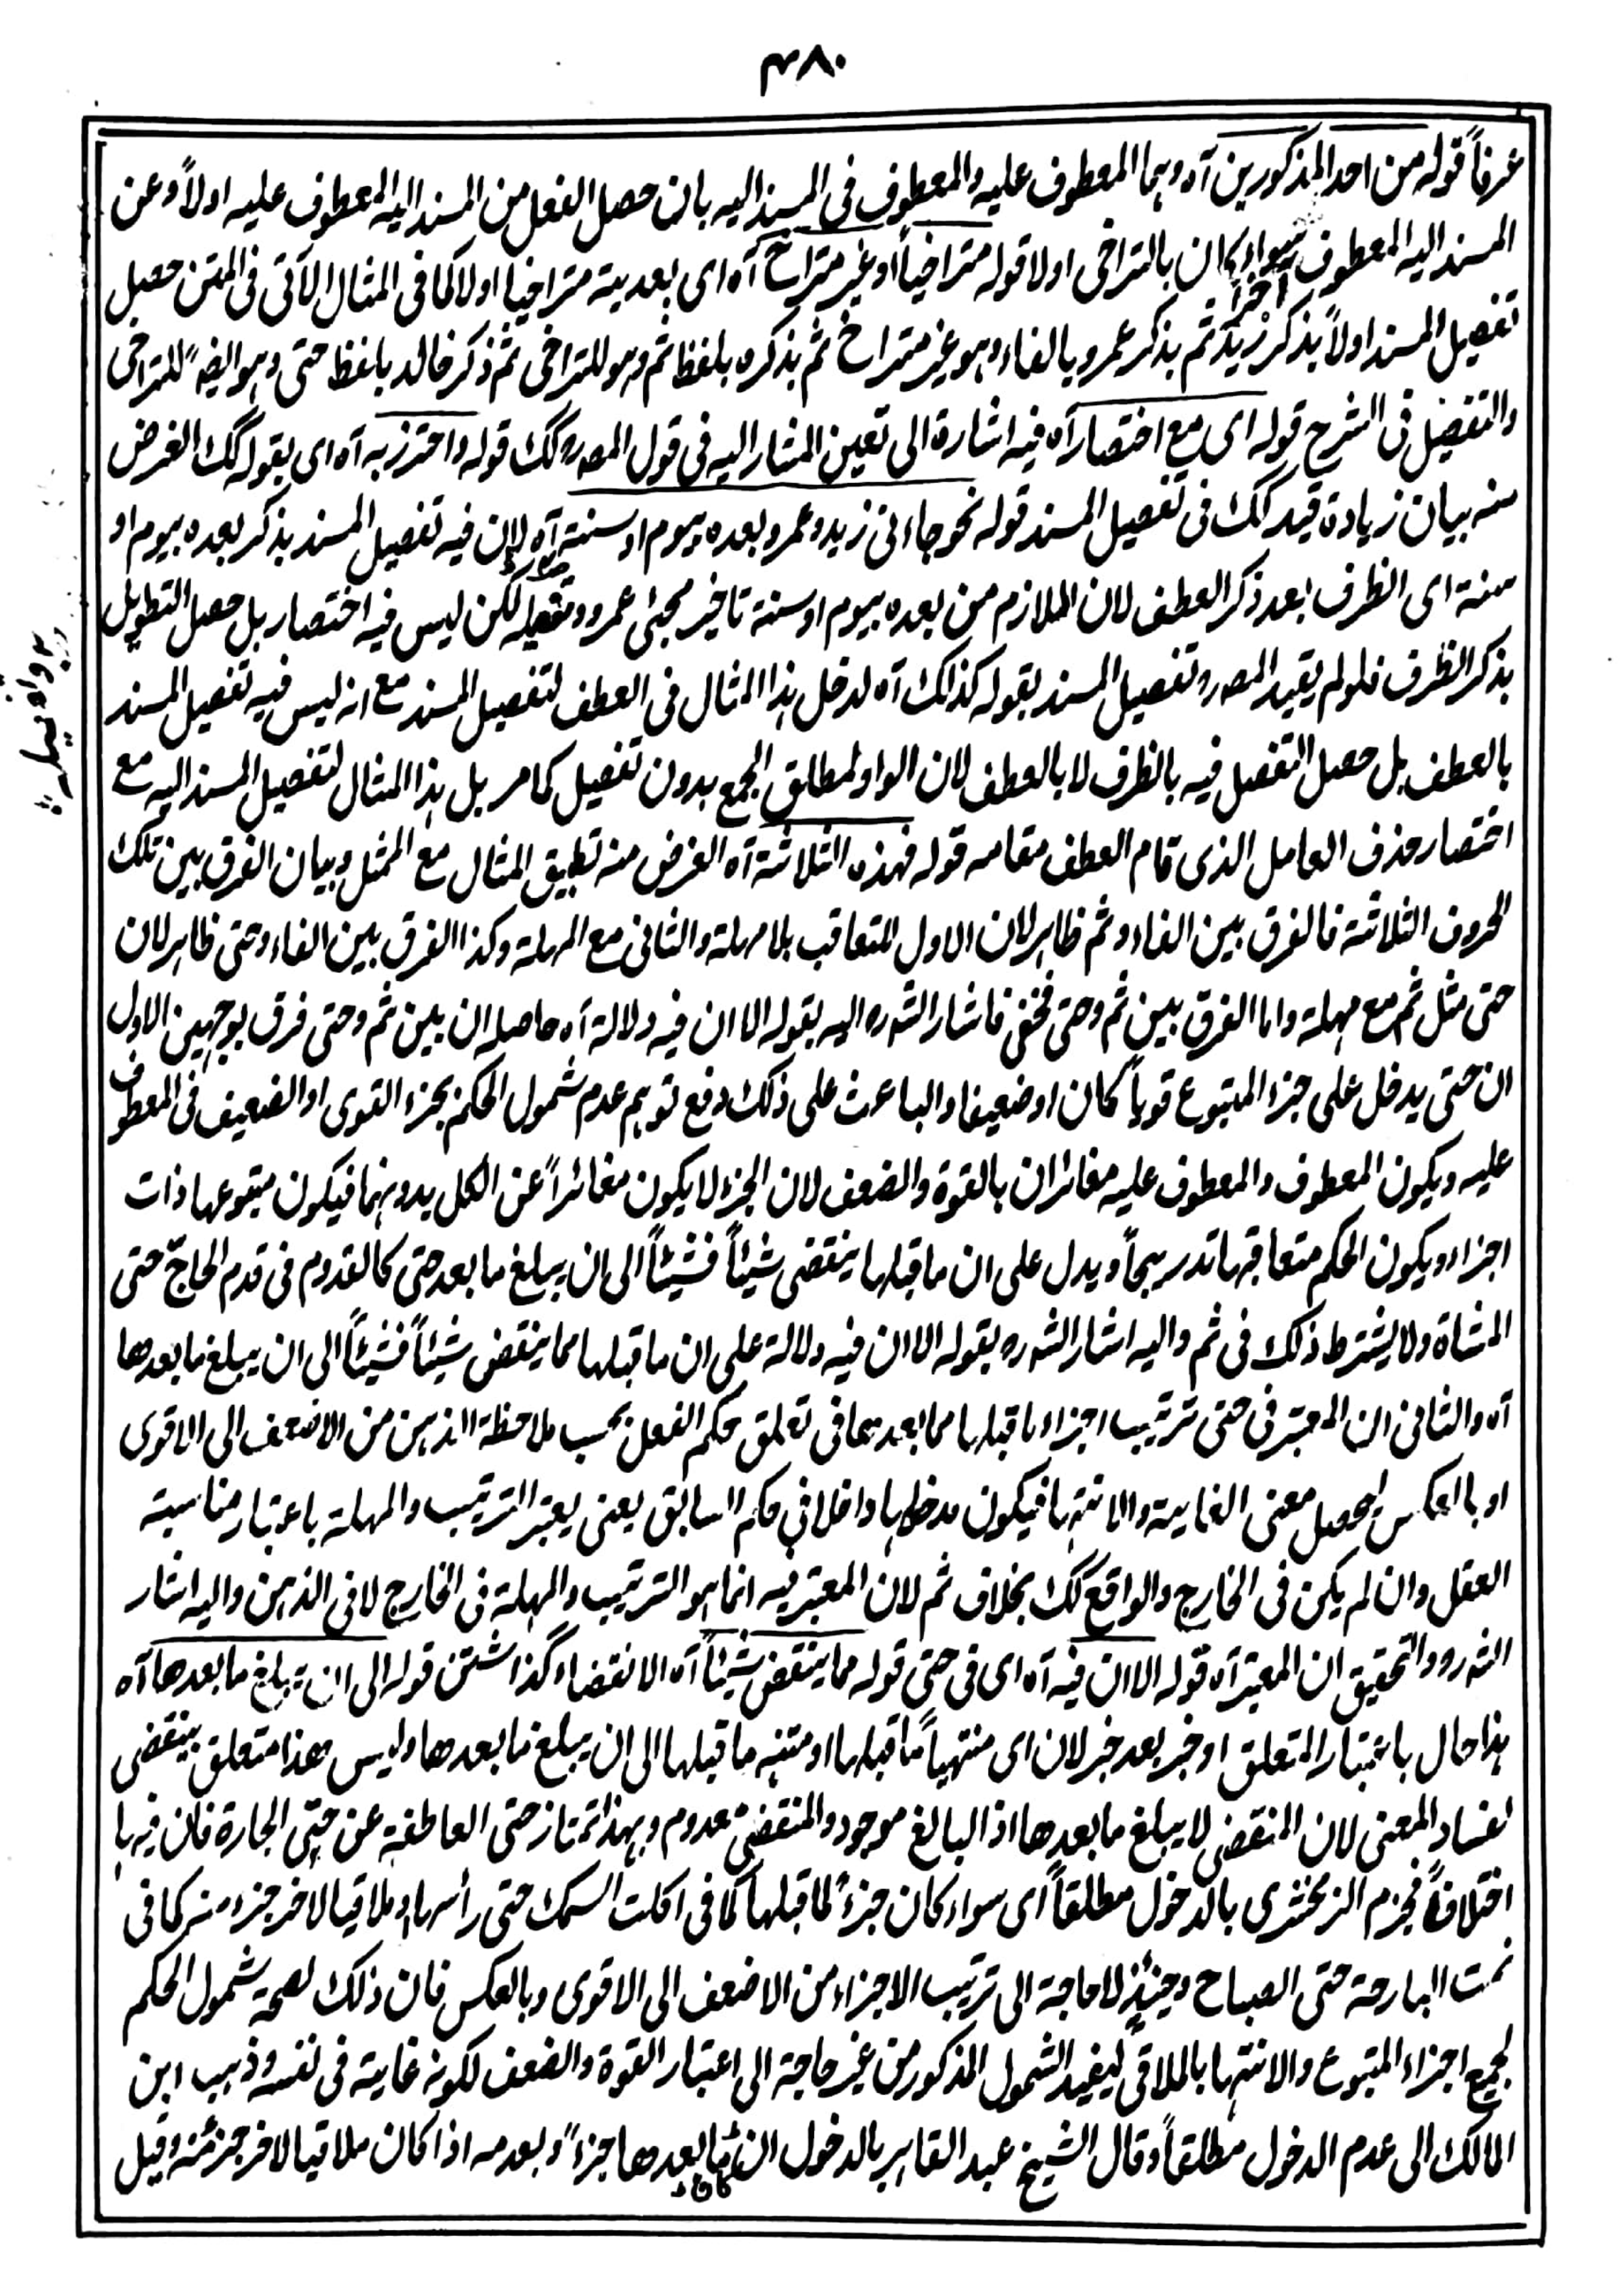 ۴۸۰
عرفاً قوله من احد المذكورين آه وہما المعطوف عليه والمعطوف فى المسند اليه بان حصل الفعل من المسند اليه المعطوف عليه اولاً وعن
المسند اليه المعطوف آخراً سواء كان بالتراخى اولا قوله متراخياً او غير متراخ آه اى بعدية متراخيا اولا كما فى المثال الآتى فى المتن حصل
تفصيل المسند اولاً بذكر زيد ثم بذكر عمرو بالفاء وہو غير متراخ ثم بذكره بلفظ ثم وہو للتراخى ثم ذكر خالد بلفظ حتى وہو ايضاً للتراخى
والتفصيل فى الشرح قوله اى مع اختصار آه فيه اشارة الى تعين المشار اليه فى قول المصره كك قوله واحترز به آه اى بقوله كك الغرض
منه بيان زيادة قيد كك فى تفصيل المسند قوله نحو جاءنى زيد وعمرو بعده بيوم او سنة آه لان فيه تفصيل المسند بذكر بعده بيوم او
سنة اى الظرف بعد ذكر العطف لان الملازم من بعده بيوم او سنة تاخير مجئ عمرو لكن ليس فيه اختصار بل حصل التطويل
بذكر الظرف فلو لم يقيد المصره تفصيل المسند بقوله كذلك آه لدخل ہذا المثال فى العطف لتفصيل المسند مع انه ليس فيه تفصيل المسند
بالعطف بل حصل التفصيل فيه بالظرف لا بالعطف لان الواو لمطلق الجمع بدون تفصيل كما مر بل ہذا المثال لتفصيل المسند اليه مع
اختصار حذف العامل الذى قام العطف مقامه قوله فهذه الثلاثة آه الغرض منه تطبيق المثال مع الممثل وبيان الفرق بين تلك
الحروف الثلاثة فالفرق بين الفاء وثم ظاہر لان الاول للتعاقب بلا مہلة والثانى مع المہلة وكذا الفرق بين الفاء وحتى ظاہر لان
حتى مثل ثم مع مہلة واما الفرق بين ثم وحتى فخفى فاشار الشره اليه بقوله الا ان فيه دلالة آه حاصله ان بين ثم وحتى فرق بوجہين الاول
ان حتى يدخل على جزء المتبوع قوياً كان او ضعيفا والباعث على ذلك دفع توہم عدم شمول الحكم بجزء القوى او الضعيف فى المعطوف
عليه ويكون المعطوف والمعطوف عليه مغائران بالقوة والضعف لان الجزء لا يكون مغائراً عن الكل بدونہما فيكون متبوعها ذات
اجزاء ويكون الحكم متعاقبا تدريجاً ويدل على ان ما قبلہا ينقضى شيئاً فشيئاً الى ان يبلغ ما بعد حتى كالقدوم فى قدم الحاجّ حتى
المشاة ولا يشترط ذلك فى ثم واليه اشار الشره بقوله الا ان فيه دلالة على ان ما قبلها مما ينقضى شيئاً فشيئاً الى ان يبلغ ما بعدها
آه والثانى ان المعتبر فى حتى ترتيب اجزاء ما قبلہا مما بعدہا فى تعلق حكم الفعل بحسب ملاحظة الذہن من الاضعف الى الاقوى
او بالعكس ليحصل معنى الغاية والانتہا فيكون مدخلہا داخلا فى حكم السابق يعنى يعتبر الترتيب والمہلة باعتبار مناسبة
العقل وان لم يكن فى الخارج والواقع كك بخلاف ثم لان المعتبر فيه انما ہو الترتيب والمہلة فى الخارج لا فى الذہن واليه اشار
الشره والتحقيق ان المعتبر آه قوله الا ان فيه آه اى فى حتى قوله مما ينقضى شيئاً آه الانقضاء گذاشتن قوله الى ان يبلغ ما بعدها آه
ہذا حال باعتبار المتعلق او خبر بعد خبر لان اى منتهياً ما قبلہا او منته ما قبلہا الى ان يبلغ ما بعدها وليس هذا متعلق بينقضى
لفساد المعنى لان المنقضى لا يبلغ ما بعدها اذ البالغ موجود والمنقضى معدوم وبهذا تمتاز حتى العاطفة عن حتى الجارة فان فيہا
اختلافاً فجزم الزمخشرى بالدخول مطلقاً اى سواء كان جزءً لما قبلها كما فى اكلت السمك حتى رأسها او ملاقيا لاخر جزء منه كما فى
نمت البارحة حتى الصباح وحينئذٍ لا حاجة الى ترتيب الاجزاء من الاضعف الى الاقوى وبالعكس فان ذلك لصحة شمول الحكم
لجميع اجزاء المتبوع والانتہا بالملاقى ليفيد الشمول المذكور من غير حاجة الى اعتبار القوة والضعف لكونه غاية فى نفسه وذہب ابن
المالك الى عدم الدخول مطلقاً وقال الشيخ عبد القاہر بالدخول ان كان ما بعدها جزءً وبعدمه اذا كان ملاقيا لاخر جزئه وقيل